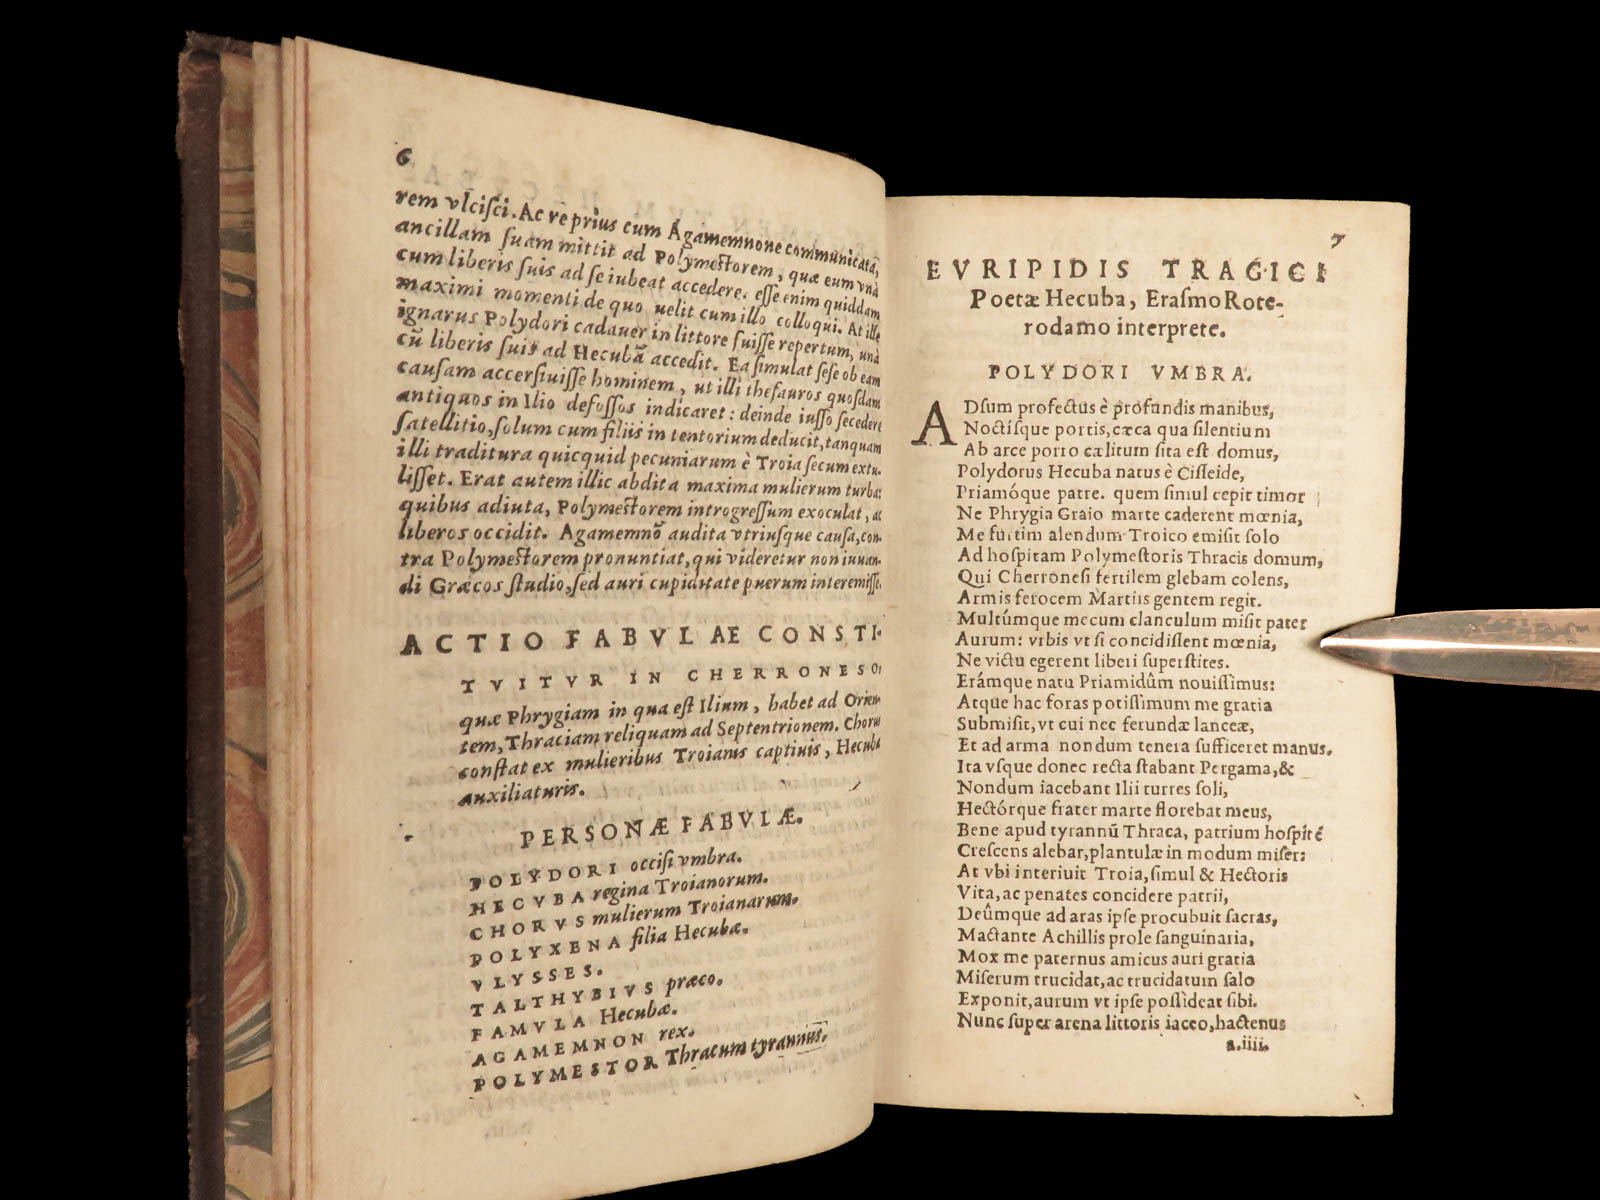 6
rem vlciſci. Ac re prius cum Agamemnone communicata,
ancillam ſuam mittit ad Polymeſtorem, quæ eum vnà
cum liberis ſuis ad ſe iubeat accedere. eſſe enim quiddam
maximi momenti de quo uelit cum illo colloqui. At ille
ignarus Polydori cadauer in littore fuiſſe repertum, unà
cū liberis ſuis ad Hecubā accedit. Ea ſimulat ſeſe ob eam
cauſam accerſiuiſſe hominem, ut illi theſauros quoſdam
antiquos in Ilio defoſſos indicaret: deinde iuſſo ſecedere
ſatellitio, ſolum cum filiis in tentorium deducit, tanquam
illi traditura quicquid pecuniarum è Troia ſecum extu-
liſſet. Erat autem illic abdita maxima mulierum turba:
quibus adiuta, Polymeſtorem introgreſſum exoculat, ac
liberos occidit. Agamemnō audita vtriuſque cauſa, con-
tra Polymeſtorem pronuntiat, qui videretur non iuuan-
di Græcos ſtudio, ſed auri cupiditate puerum interemiſſe.
ACTIO FABVLAE CONSTI-
TVITVR IN CHERRONESO,
quæ Phrygiam in qua eſt Ilium, habet ad Orien-
tem, Thraciam reliquam ad Septentrionem. Chorus
conſtat ex mulieribus Troianis captiuis, Hecubæ
auxiliaturis.
PERSONÆ FABVLÆ.
POLYDORI occiſi vmbra.
HECVBA regina Troianorum.
CHORVS mulierum Troianarum.
POLYXENA filia Hecubæ.
VLYSSES.
TALTHYBIVS præco.
FAMVLA Hecubæ.
AGAMEMNON rex.
POLYMESTOR Thracum tyrannus.
7
EVRIPIDIS TRAGICI
Poetæ Hecuba, Eraſmo Rote-
rodamo interprete.
POLYDORI VMBRA.
ADſum profectus è profundis manibus,
Noctíſque portis, cæca qua ſilentium
Ab arce porro cælitum ſita eſt domus,
Polydorus Hecuba natus è Ciſſeide,
Priamóque patre. quem ſimul cepit timor
Ne Phrygia Graio marte caderent mœnia,
Me furtim alendum Troico emiſit ſolo
Ad hoſpitam Polymeſtoris Thracis domum,
Qui Cherroneſi fertilem glebam colens,
Armis ferocem Martiis gentem regit.
Multúmque mecum clanculum miſit pater
Aurum: vrbis vt ſi concidiſſent mœnia,
Ne victu egerent liberi ſuperſtites.
Erámque natu Priamidûm nouiſſimus:
Atque hac foras potiſſimum me gratia
Submiſit, vt cui nec ferundæ lanceæ,
Et ad arma nondum tenera ſufficeret manus.
Ita vſque donec recta ſtabant Pergama, &
Nondum iacebant Ilii turres ſoli,
Hectórque frater marte florebat meus,
Bene apud tyrannū Thraca, patrium hoſpitē
Creſcens alebar, plantulæ in modum miſer:
At vbi interiuit Troia, ſimul & Hectoris
Vita, ac penates concidere patrii,
Deûmque ad aras ipſe procubuit ſacras,
Mactante Achillis prole ſanguinaria,
Mox me paternus amicus auri gratia
Miſerum trucidat, ac trucidatum ſalo
Exponit, aurum vt ipſe poſſideat ſibi.
Nunc ſuper arena littoris iaceo, hactenus
a.iiii.